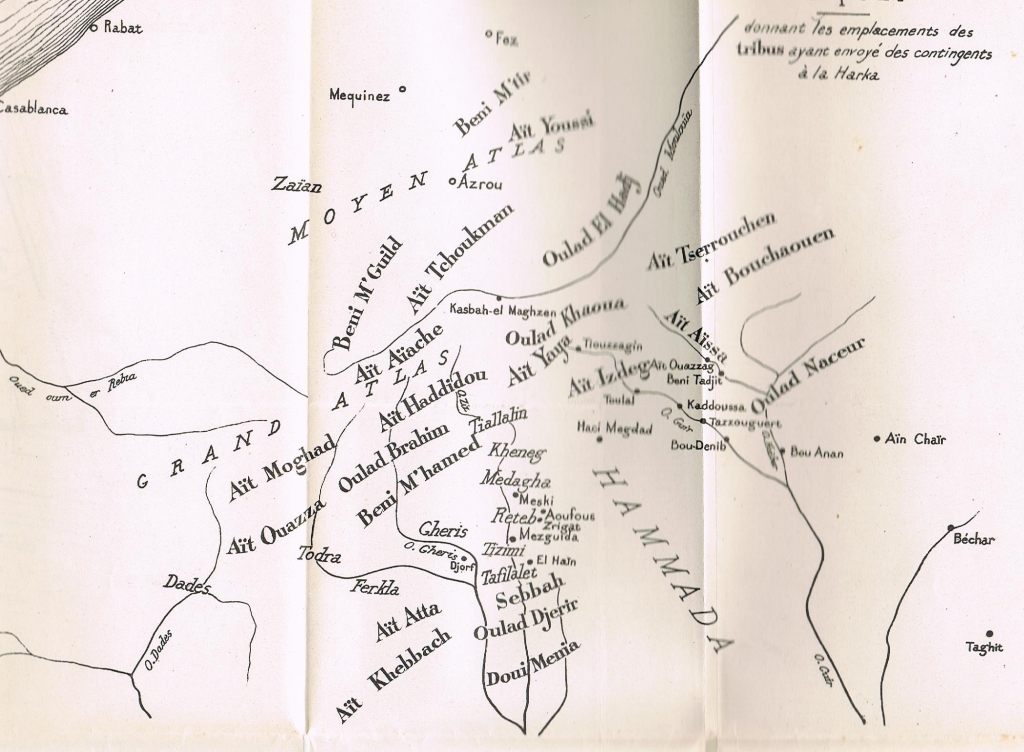 donnant les emplacements des
tribus ayant envoyé des contingents
à la Harka
Rabat
Fez
Casablanca
Mequinez
Beni M'tir
Aït Youssi
MOYEN ATLAS
Zaïan
Azrou
Oued Moulouïa
Oulad El Hadj
Aït Tserrouchen
Aït Bouchaouen
Beni M'Guild
Aït Tchoukman
Kasbah-el Maghzen
Oulad Khaoua
Aït Aïssa
Aït Aïache
Aït Yaya
Tiouzzagin
Aït Ouazzag
Beni Tadjit
Oulad Naceur
Oued oum er Rebia
GRAND ATLAS
Aït Haddidou
Aït Izdeg
Toulal
Kaddoussa
O. Guir
Tazzouguert
Tiallalin
Haci Megdad
Bou-Denib
Bou Anan
Aïn Chaïr
Aït Moghad
Oulad Brahim
Beni M'hamed
Kheneg
Medagha
Meski
HAMMADA
Aït Ouazza
Reteb
Aoufous
Zrigat
Gheris
Mezguida
O. Gheris
Djorf
Tizimi
El Haïn
Béchar
Todra
Ferkla
Tafilalet
Dades
Sebbah
Aït Atta
Oulad Djerir
O. Dades
Aït Khebbach
Doui Menia
Taghit